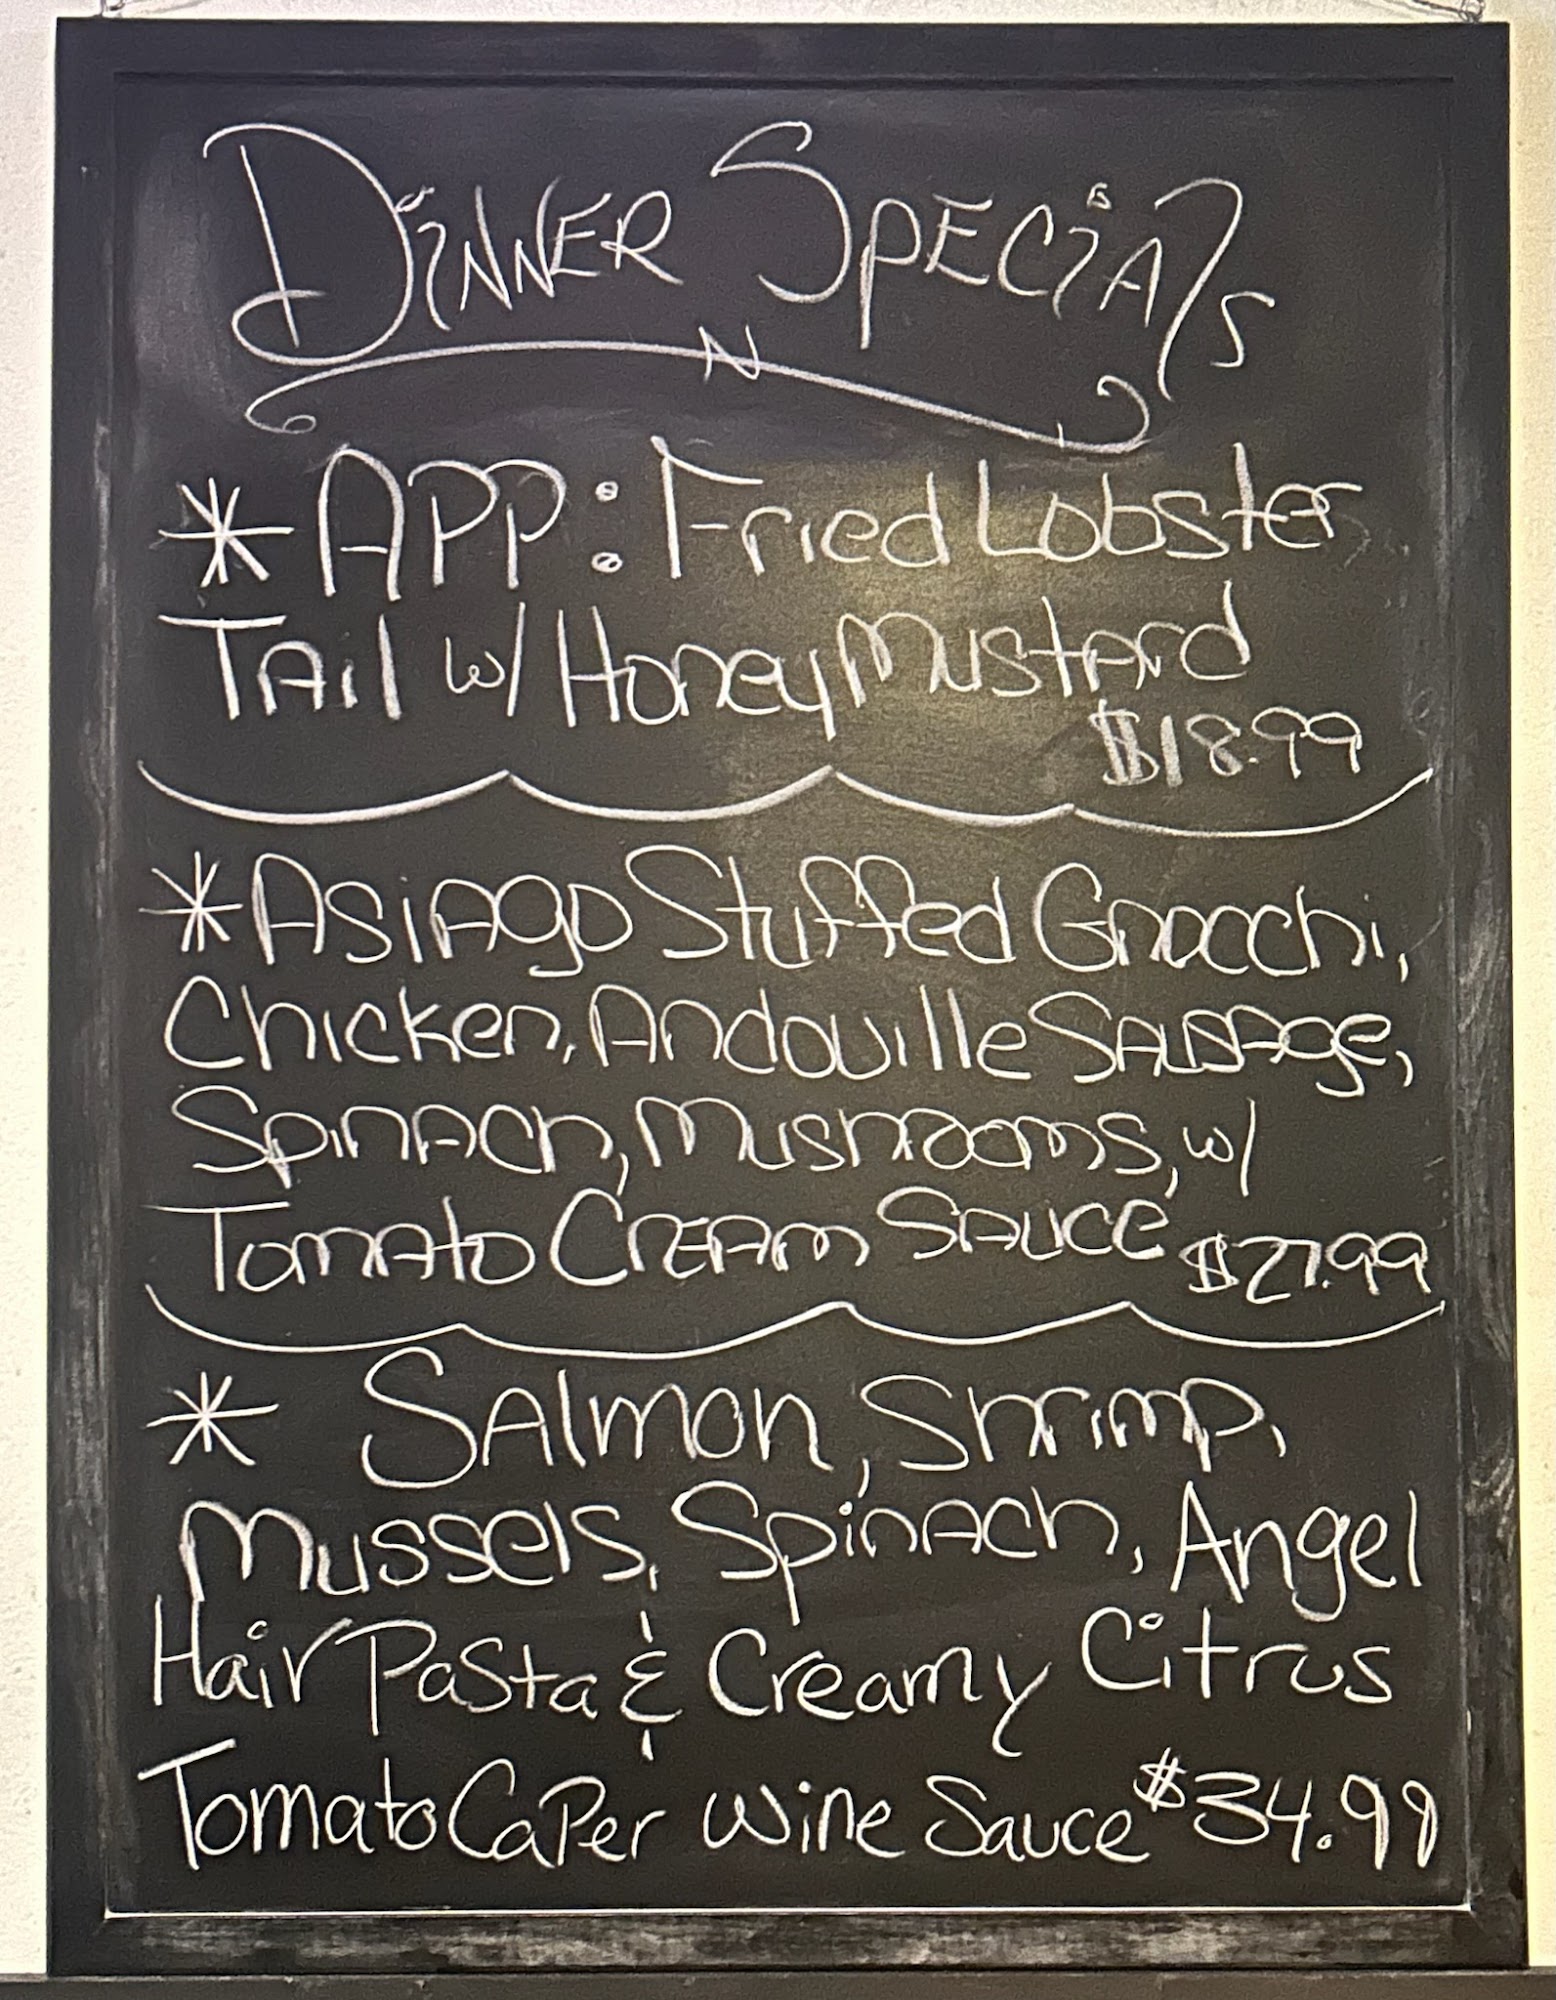 DiNNER SPECiAlS
* APP: Fried Lobster
TAil w/ Honey MustArd
$18.99
* AsiAgo Stuffed Gnocchi,
Chicken, Andouille SAusAge,
SpinAch, Mushrooms, w/
TomAto CREAm SAuce $27.99
* SAlmon, Shrimp,
Mussels, SpinAch, Angel
Hair Pasta & Creamy Citrus
Tomato CaPer Wine Sauce $34.99